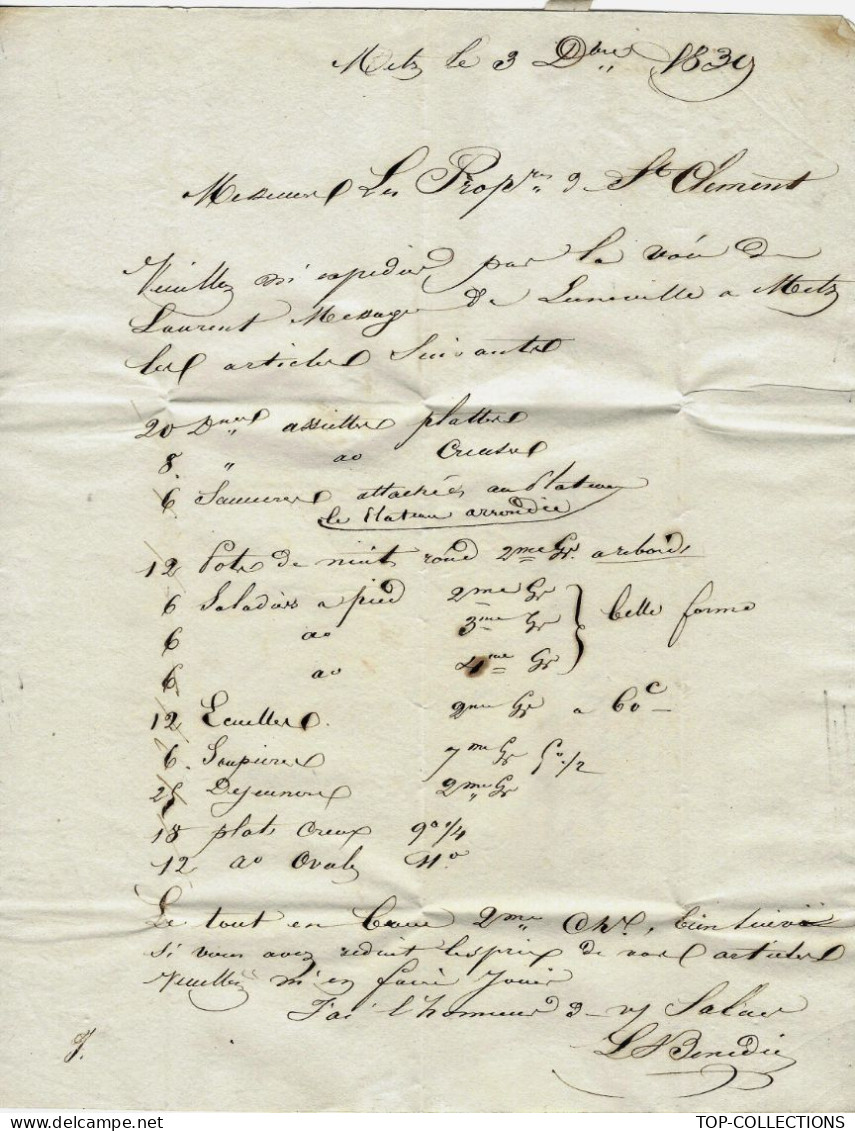 Metz le 3 Dbre 1839
Messieurs Les Propres de St Clement
Veuillez m'expedier par la voie de
Laurent Messager de Luneville a Metz
les articles Suivants
20 Dnes assiettes plattes
8 " do Creuses
6 Saucieres attachées au Plateau
le Plateau arrondie
12 Pots de nuit rond 2me Gr. a rebords
6 Saladiers a pied 2me Gr
6 do 3me Gr belle forme
6 do 4me Gr
12 Ecuelles 2me Gr a 60c
6 Soupieres 7me Gr
25 Dejeuners 2me Gr
18 plats Creux 9o 1/4
12 do Ovale 11o
Le tout en beau 2me Chx,
si vous avez reduit les prix de vos articles
Veuillez m'en faire Jouir
J'ai l'honneur de vs Saluer
L Benedic
J.
TOP-COLLECTIONS